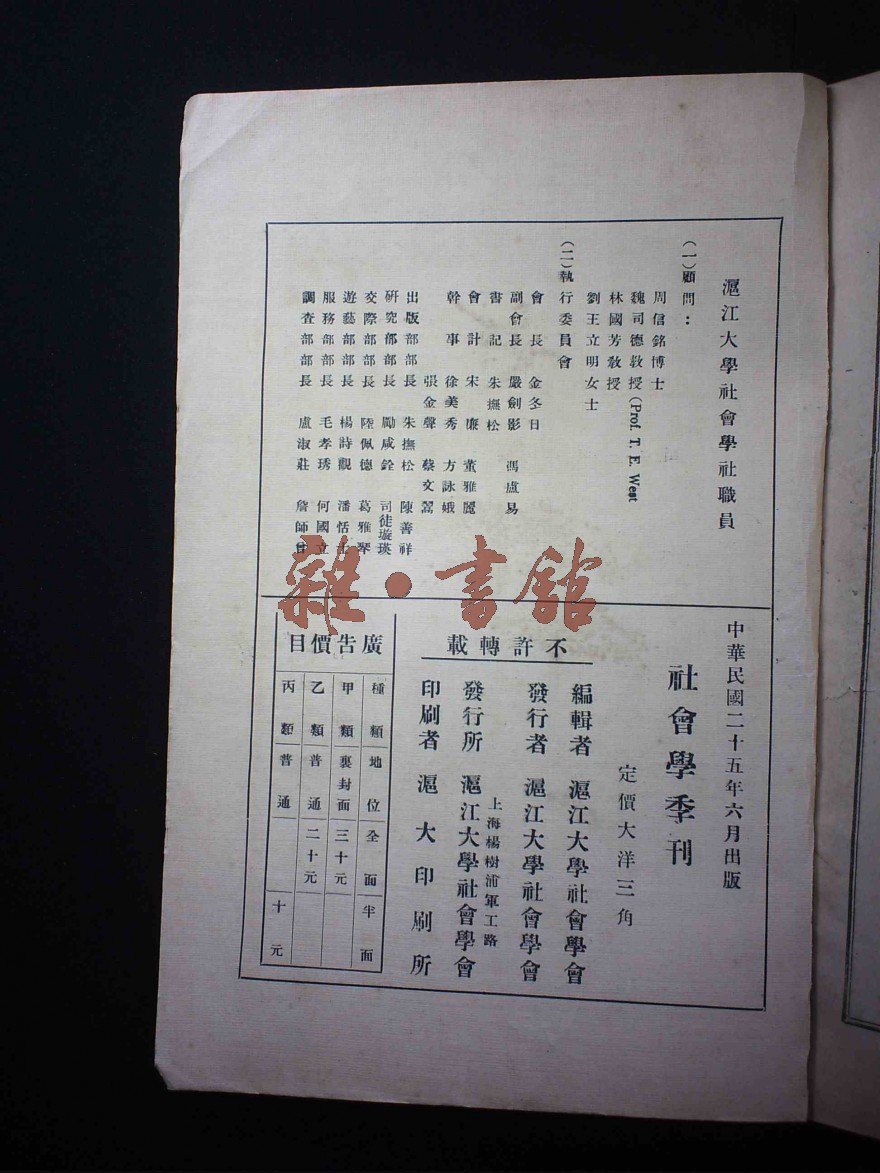 滬江大學社會學社職員
（一）顧問：
周信銘博士
魏司德教授(Prof. T. E. West
林國芳教授
劉王立明女士
（二）執行委員會
會長 金冬日
副會長 嚴劍影 馮盧易
書記 朱撫松
會計 宋廉 董雅麗
幹事 徐美秀 方詠娥
張金聲 蔡文
出版部部長 朱撫松 陳善祥
研究部部長 勵咸銓 司徒璇瑛
交際部部長 陸佩德 葛雅琴
遊藝部部長 楊詩觀 潘恬士
服務部部長 毛孝琇 何國立
調查部部長 盧淑莊 詹師曾
雜·書館
中華民國二十五年六月出版
社會學季刊
定價大洋三角
不許轉載
編輯者 滬江大學社會學會
發行者 滬江大學社會學會
上海楊樹浦軍工路
發行所 滬江大學社會學會
印刷者 滬大印刷所
廣告價目
種類 地位 全面 半面
甲類 裏封面 三十元
乙類 普通 二十元
丙類 普通 十元